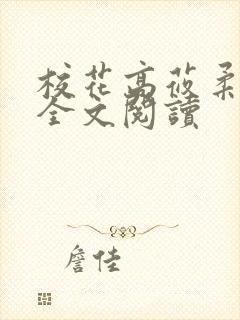 校花高莜柔
全文閱讀
詹佳